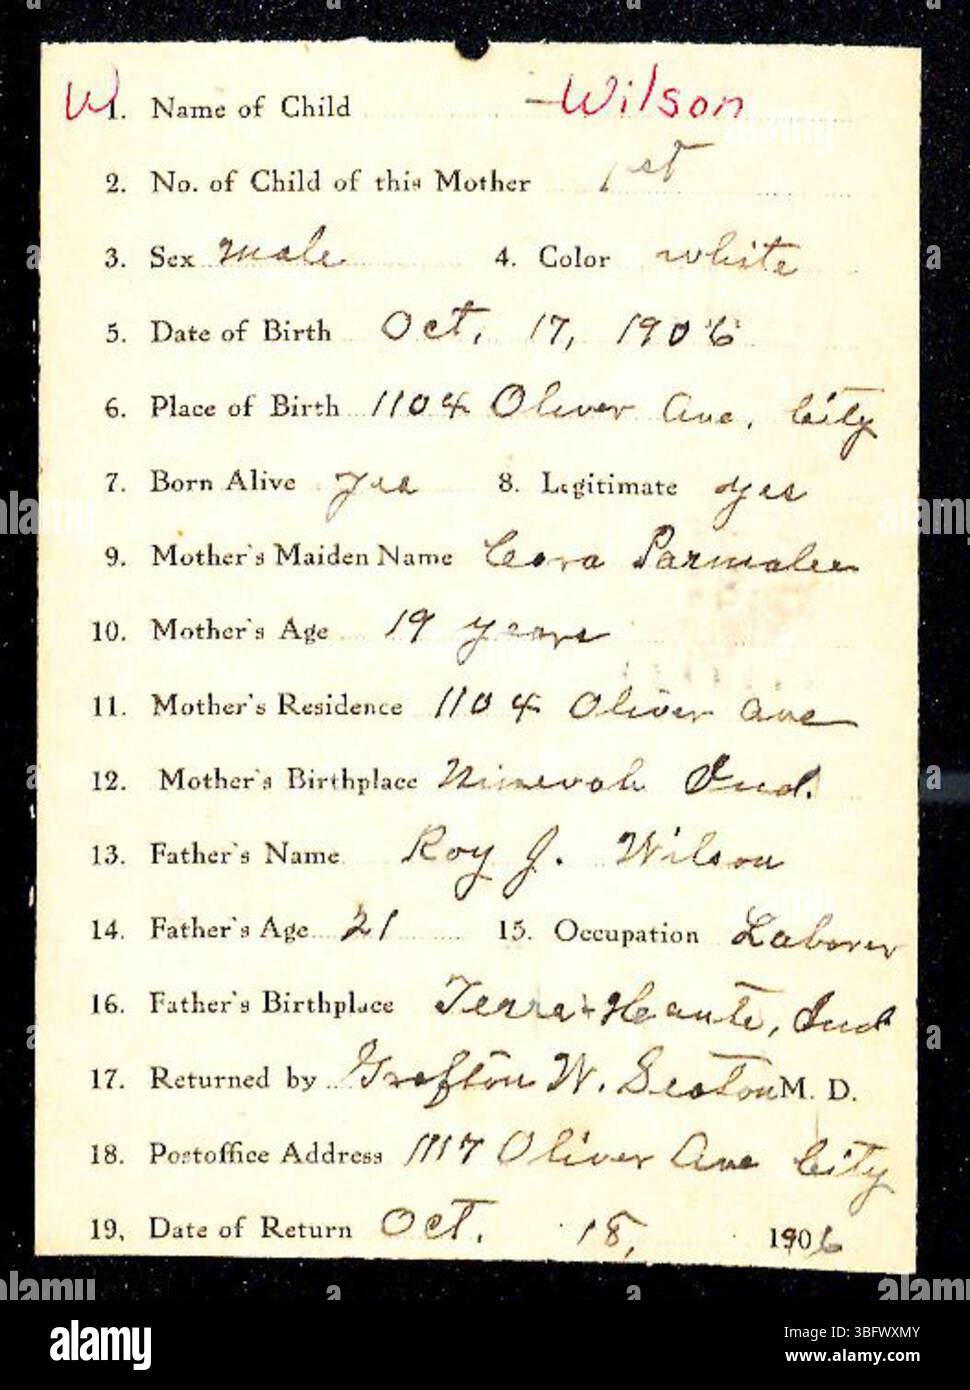 W 1. Name of Child —Wilson
2. No. of Child of this Mother 1st
3. Sex male 4. Color white
5. Date of Birth Oct. 17, 1906
6. Place of Birth 1104 Oliver Ave. City
7. Born Alive Yes 8. Legitimate yes
9. Mother's Maiden Name Cora Parmalee
10. Mother's Age 19 years
11. Mother's Residence 1104 Oliver Ave
12. Mother's Birthplace Ninevah Ind.
13. Father's Name Roy J. Wilson
14. Father's Age 21 15. Occupation Laborer
16. Father's Birthplace Terre-Haute, Ind
17. Returned by Grafton W. Seaton M. D.
18. Postoffice Address 1117 Oliver Ave City
19. Date of Return Oct. 18, 1906
alamy
Image ID: 3BFWXMY
www.alamy.com